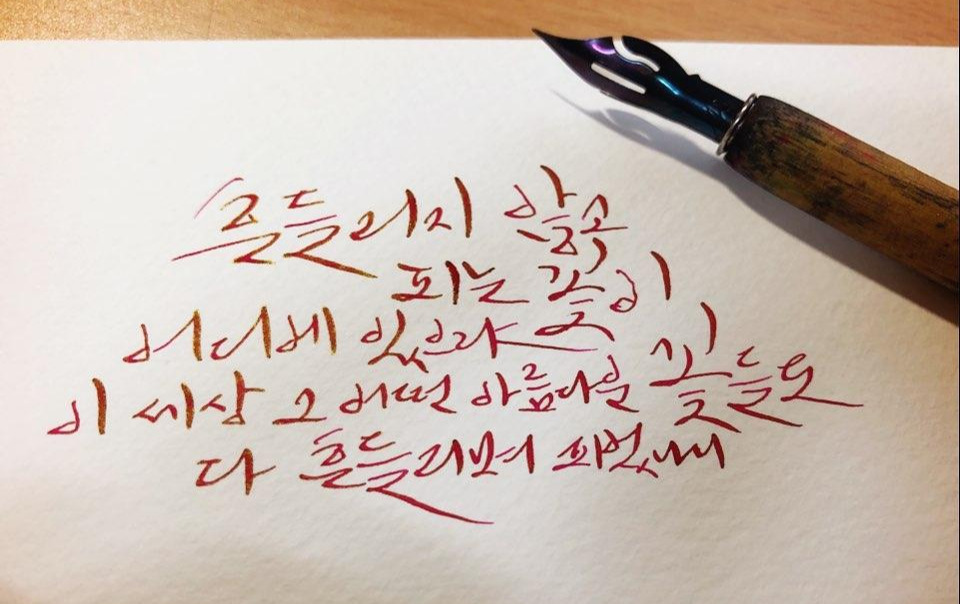 흔들리지 않고
피는 꽃이
어디에 있으랴
이 세상 그 어떤 아름다운 꽃들도
다 흔들리며 피었나니